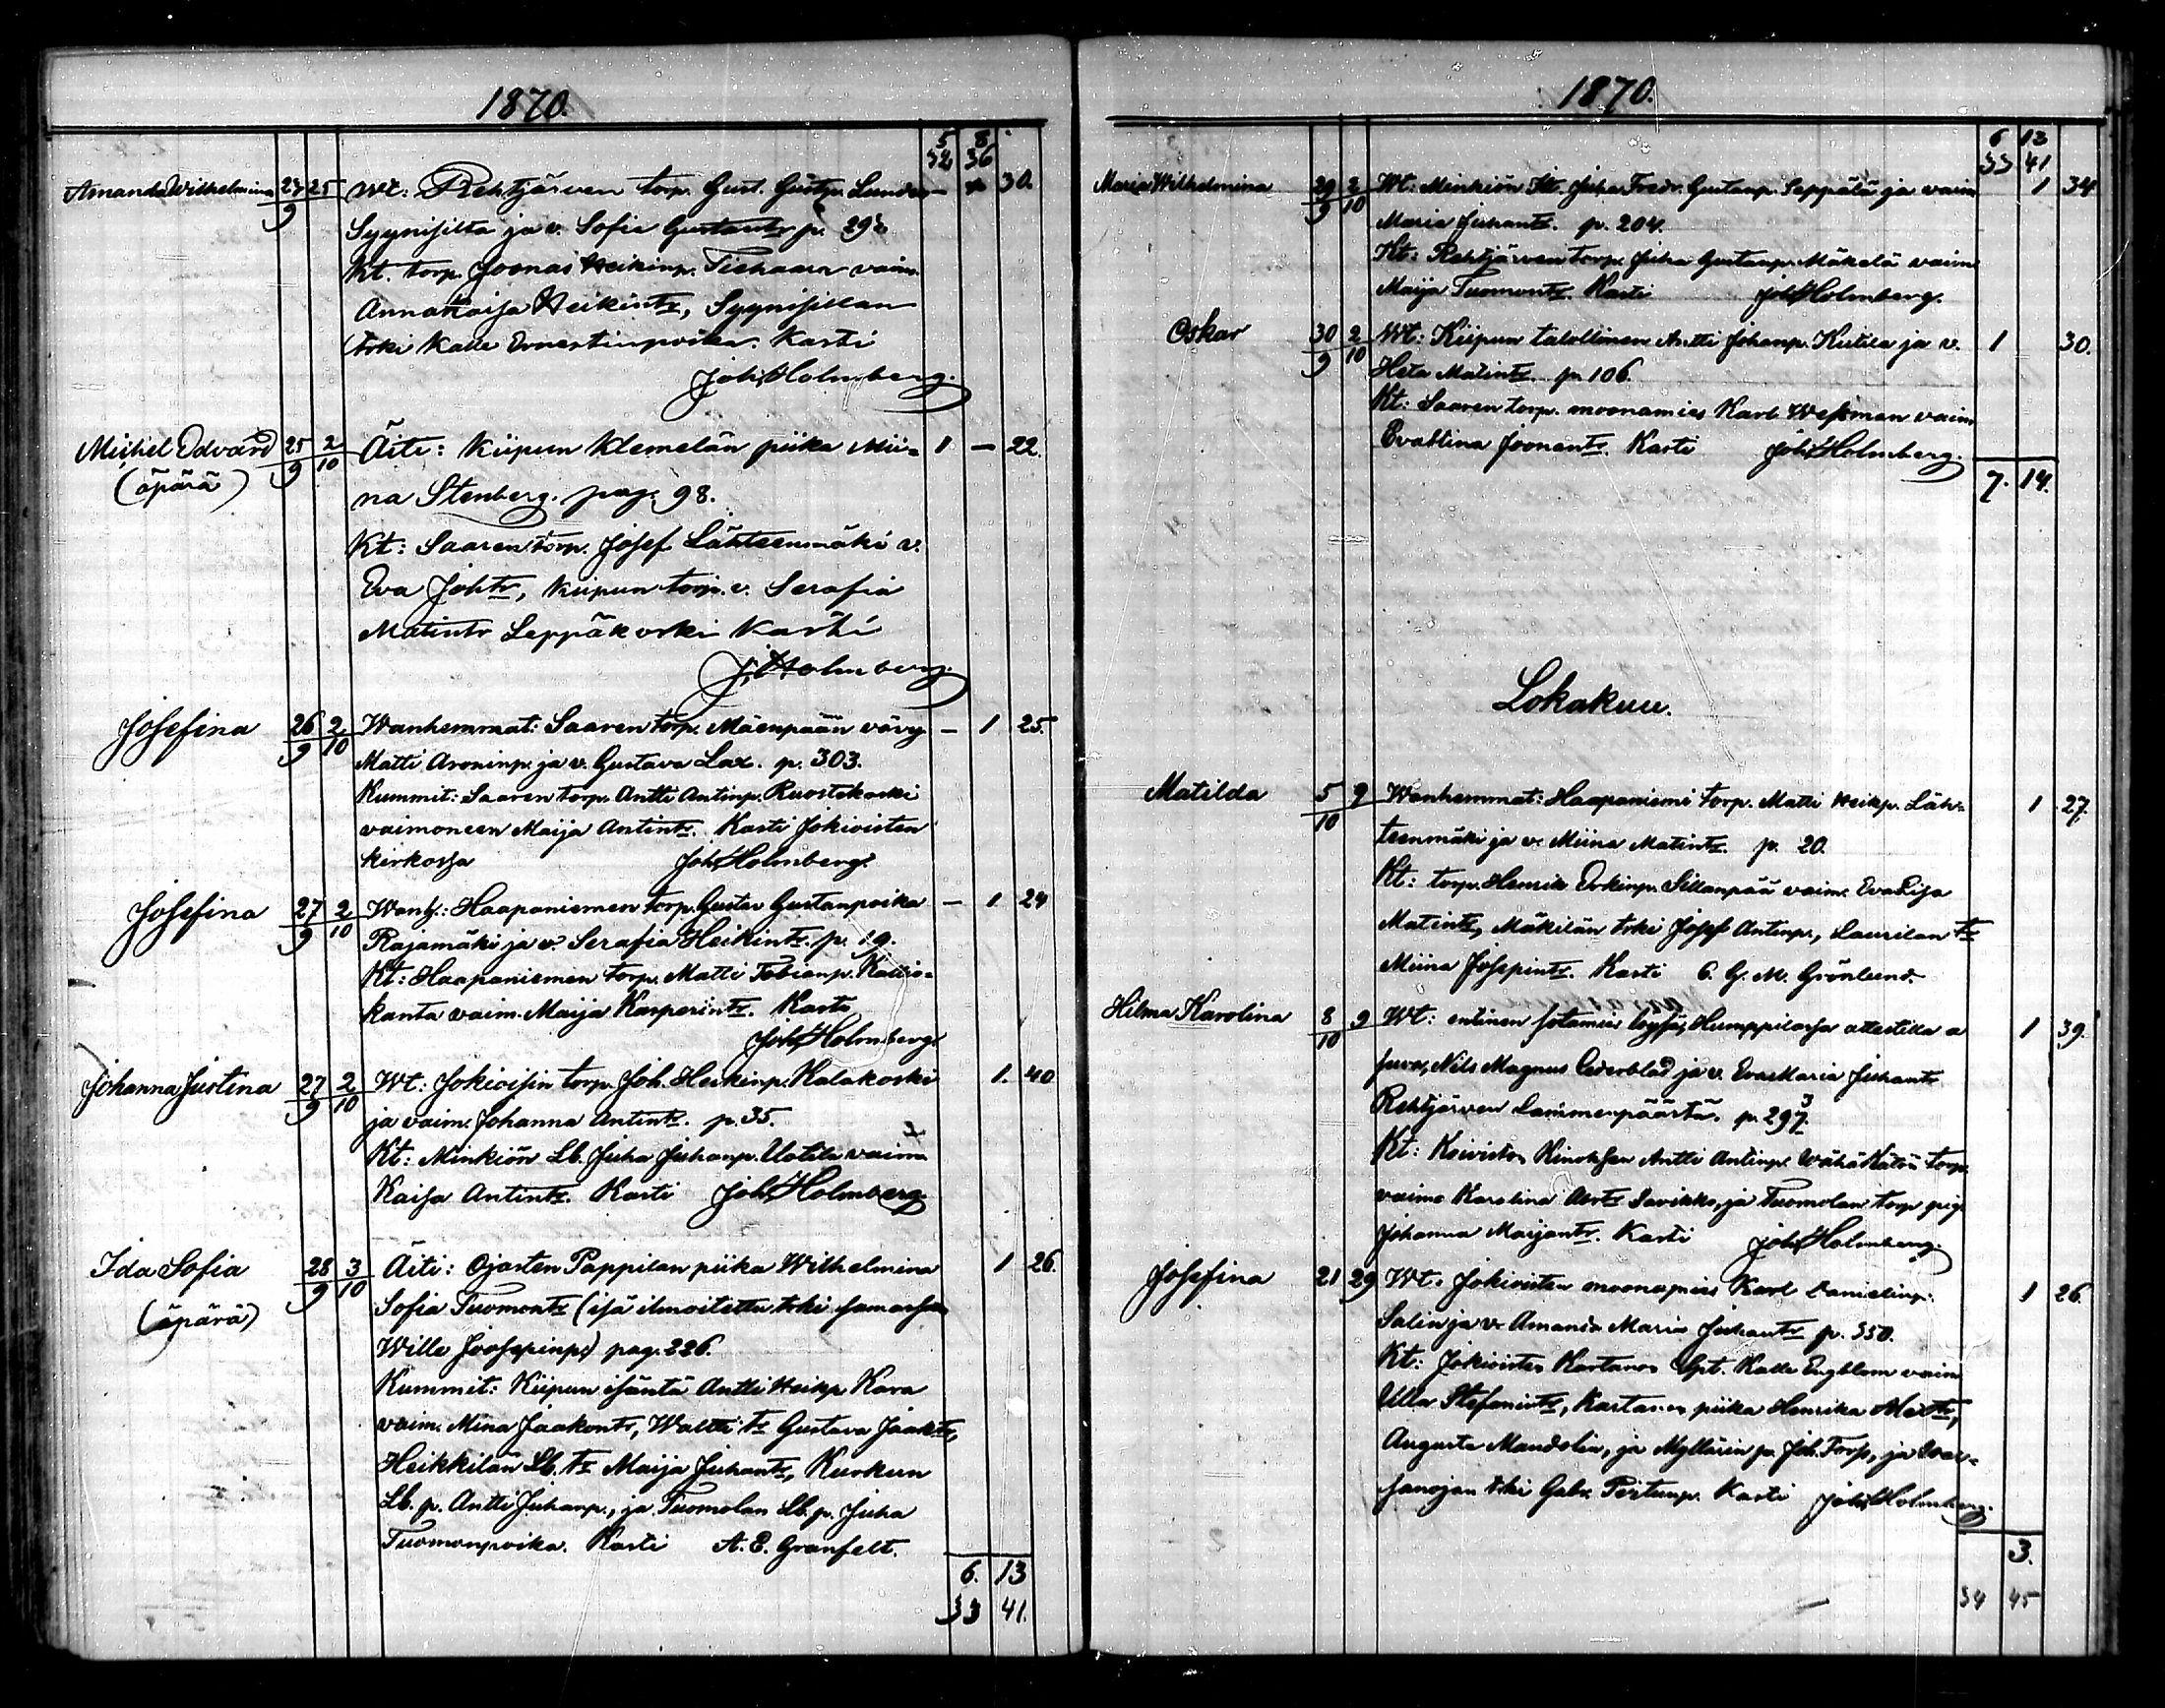 1870.
5 8
32 36
Amanda Wilhelmina 23/9 25 Wt: Rehtijärven torp. Gust. Gustp. - 30.
Syynisilta ja v. Sofia Gustavtr p. 292
Kt. torp. Joonas Heikinp. Tiehaara vaim.
Anna Kaisa Heikintr, Syynisillan
trki Kalle Ernestinpoika. Kasti
Joh. Holmberg.
Michel Edvard 25/9 2/10 Äiti: Kiipun Klemelän piika Mii= 1 - 22.
(äpärä) na Stenberg. pag. 98.
Kt: Saaren torp. Josef Lähteenmäki v.
Eva Johtr, Kiipun torp. v. Serafia
Matintr Leppäkoski Kasti
J. Holmberg.
Josefina 26/9 2/10 Wanhemmat: Saaren torp. Mäenpään vävy - 1 25.
Matti Aroninp. ja v. Gustava Lax. p. 303.
Kummit: Saaren torp. Antti Antinp. Ruostekoski
vaimoneen Maija Antintr. Kasti Jokioisten
kirkossa Joh. Holmberg.
Josefina 27/9 2/10 Wanh.: Haapaniemen torp. Gustav Gustanpoika - 1 24
Rajamäki ja v. Serafia Heikintr. p. 19.
Kt: Haapaniemen torp. Matti Tobianp. Kallio=
kanta vaim. Maija Kasperintr. Kasti
Joh. Holmberg.
Johanna Justina 27/9 2/10 Wt: Jokioisin torp. Joh. Heikinp. Kalakoski 1. 40
ja vaim. Johanna Antintr. p. 35.
Kt: Minkiön Lb. Juha Juhanp. Uotila vaim
Kaisa Antintr. Kasti Joh. Holmberg.
Ida Sofia 28/9 3/10 Äiti: Ojasten Pappilan piika Wilhelmina 1 26.
(äpärä) Sofia Tuomontr (isä ilmoitettu trki samassa
Wille Joosepinp.) pag. 226.
Kummit: Kiipun isäntä Antti Heikp. Kara
vaim. Mina Jaakontr, Waltti tr Gustava Jaaktr,
Heikkilän Lb. tr Maija Juhantr, Kurkun
Lb. p. Antti Juhanp., ja Tuomolan Lb. p. Juha
Tuomonpoika. Kasti A. E. Granfelt.
6. 13
33 41.
1870.
6 13
33 41
Maria Wilhelmina 29/9 2/10 Wt: Minkiön Juha Fredr. Gustanp. Seppälä ja vaim 1 34
Maria Juhantr. p. 204.
Kt: Rehtijärven torp. Juha Gustanp. Mäkelä vaim
Maija Tuomontr. Kasti Joh. Holmberg.
Oskar 30/9 2/10 Wt: Kiipun talollinen Antti Johanp. Kutila ja v. 1 30.
Heta Matintr. p. 106.
Kt: Saaren torp. moonamies Karl Wessman vaim
Evastina Joonantr. Kasti Joh. Holmberg.
7. 14.
Lokakuu.
Matilda 5/10 9 Wanhemmat: Haapaniemi torp. Matti Heikp. Läh= 1 27.
teenmäki ja v. Miina Matintr. p. 20.
Kt: torp. Henrik Erkinp. Sillanpää vaim. Eva Lisa
Matintr, Mäkilän trki Josef Antinp., Laurilan tr
Miina Josepintr. Kasti C. G. M. Grönlund.
Hilma Karolina 8/10 9 Wt: entinen sotamies Loysä, Humppilassa attestilla a 1 39.
suva, Nils Magnus Cederblad ja v. Eva Maria Juhantr
Rehtijärven Lamminpäästä. p. 297 3.
Kt: Koiviston Antti Antinp. torp.
vaimo Karolina Savikko, ja Tuomolan torp. pig.
Johanna Maijantr. Kasti Joh. Holmberg.
Josefina 21 29 Wt: Jokioisten moonamies Karl Danielinp. 1 26.
Salin ja v. Amanda Maria Juhantr p. 350.
Kt: Jokioisten Kartanon Kalle Engblom vaim
Ulla Stefanintr, Kartanon piika Henrika
Augusta Mandolin, ja Myllärin p. Joh. Torp, ja
sanojan trki Gabr. Pertunp. Kasti Joh. Holmberg.
3.
34 45